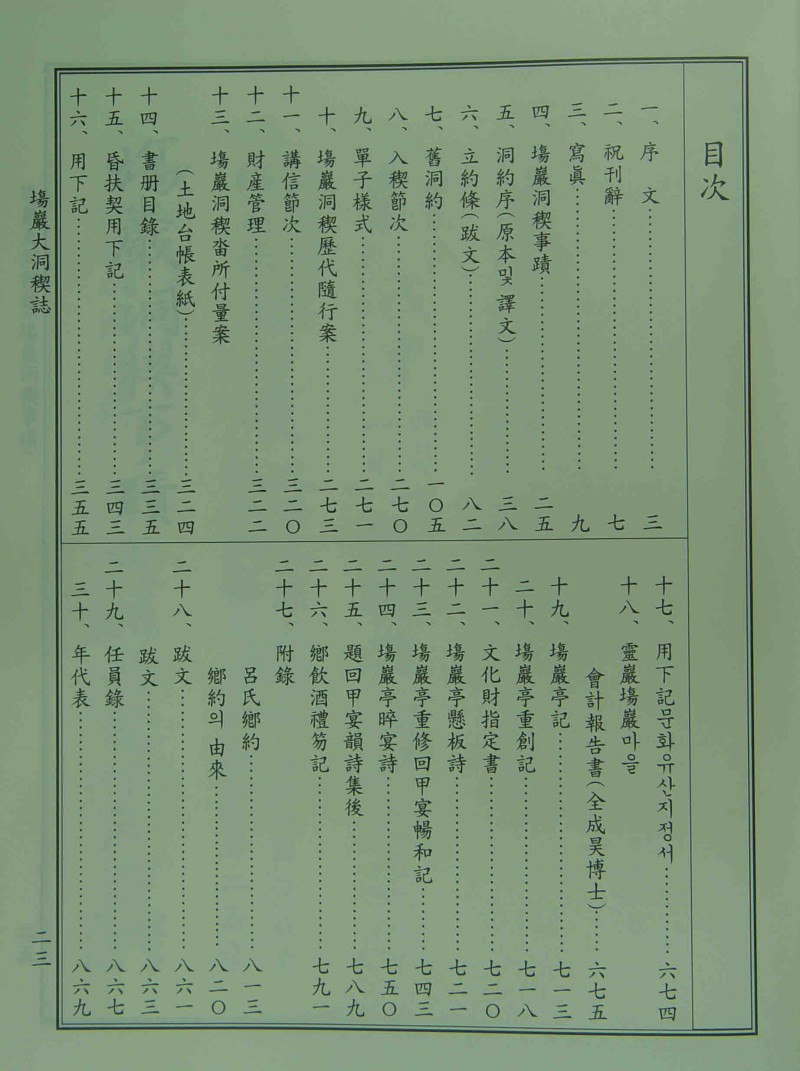 目次
一、序 文 ………… 三
二、祝刊辭 ………… 七
三、寫眞 ………… 九
四、塲巖洞稧事蹟 ………… 二五
五、洞約序(原本및 譯文) ………… 三八
六、立約條(跋文) ………… 八二
七、舊洞約 ………… 一〇五
八、入稧節次 ………… 二七〇
九、單子樣式 ………… 二七一
十、塲巖洞稧歷代隨行案 ………… 二七三
十一、講信節次 ………… 三二〇
十二、財産管理 ………… 三二二
十三、塲巖洞稧畓所付量案
(土地台帳表紙) ………… 三二四
十四、書册目錄 ………… 三三五
十五、昏扶契用下記 ………… 三四三
十六、用下記 ………… 三五五
十七、用下記문화유산지정서 ………… 六七四
十八、靈巖塲巖마을
會計報告書(全成昊博士) ………… 六七五
十九、塲巖亭記 ………… 七一三
二十、塲巖亭重創記 ………… 七一八
二十一、文化財指定書 ………… 七二〇
二十二、塲巖亭懸板詩 ………… 七二一
二十三、塲巖亭重修回甲宴暢和記 ………… 七四三
二十四、塲巖亭晬宴詩 ………… 七五〇
二十五、題回甲宴韻詩集後 ………… 七八九
二十六、鄕飮酒禮笏記 ………… 七九一
二十七、附錄
呂氏鄕約 ………… 八一三
鄕約의 由來 ………… 八二〇
二十八、跋文 ………… 八六一
跋文 ………… 八六三
二十九、任員錄 ………… 八六七
三十、年代表 ………… 八六九
塲巖大洞稧誌
二三